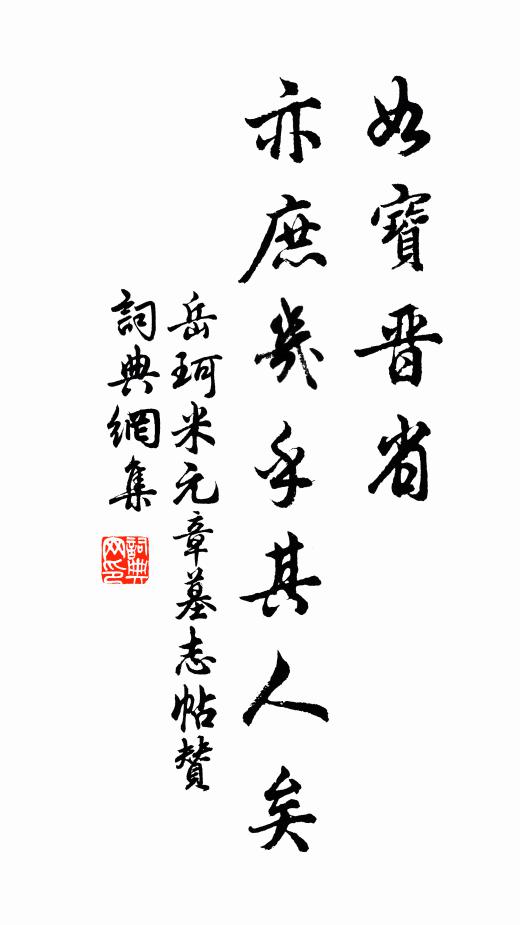 如寶晋省
亦庶幾乎其人矣
岳珂米元章墓志帖贊
詞典網集
詞典網印